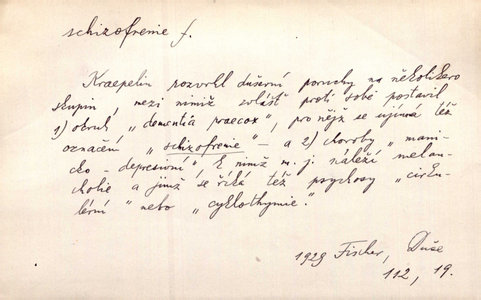 schizofrenie f.
Kraepelin rozvrhl duševní poruchy na několikero
skupin, mezi nimiž zvlášť proti sobě postavil
1) okruh „dementia praecox", pro nějž se ujímá též
označení „schizofrenie" – a 2) choroby „mani-
cko-depresivní", k nimž m. j. náleží melan-
cholie a jimž se říká též psychosy „cirku-
lární" nebo „cyklothymie".
1929 Fischer, Duše
112, 19.